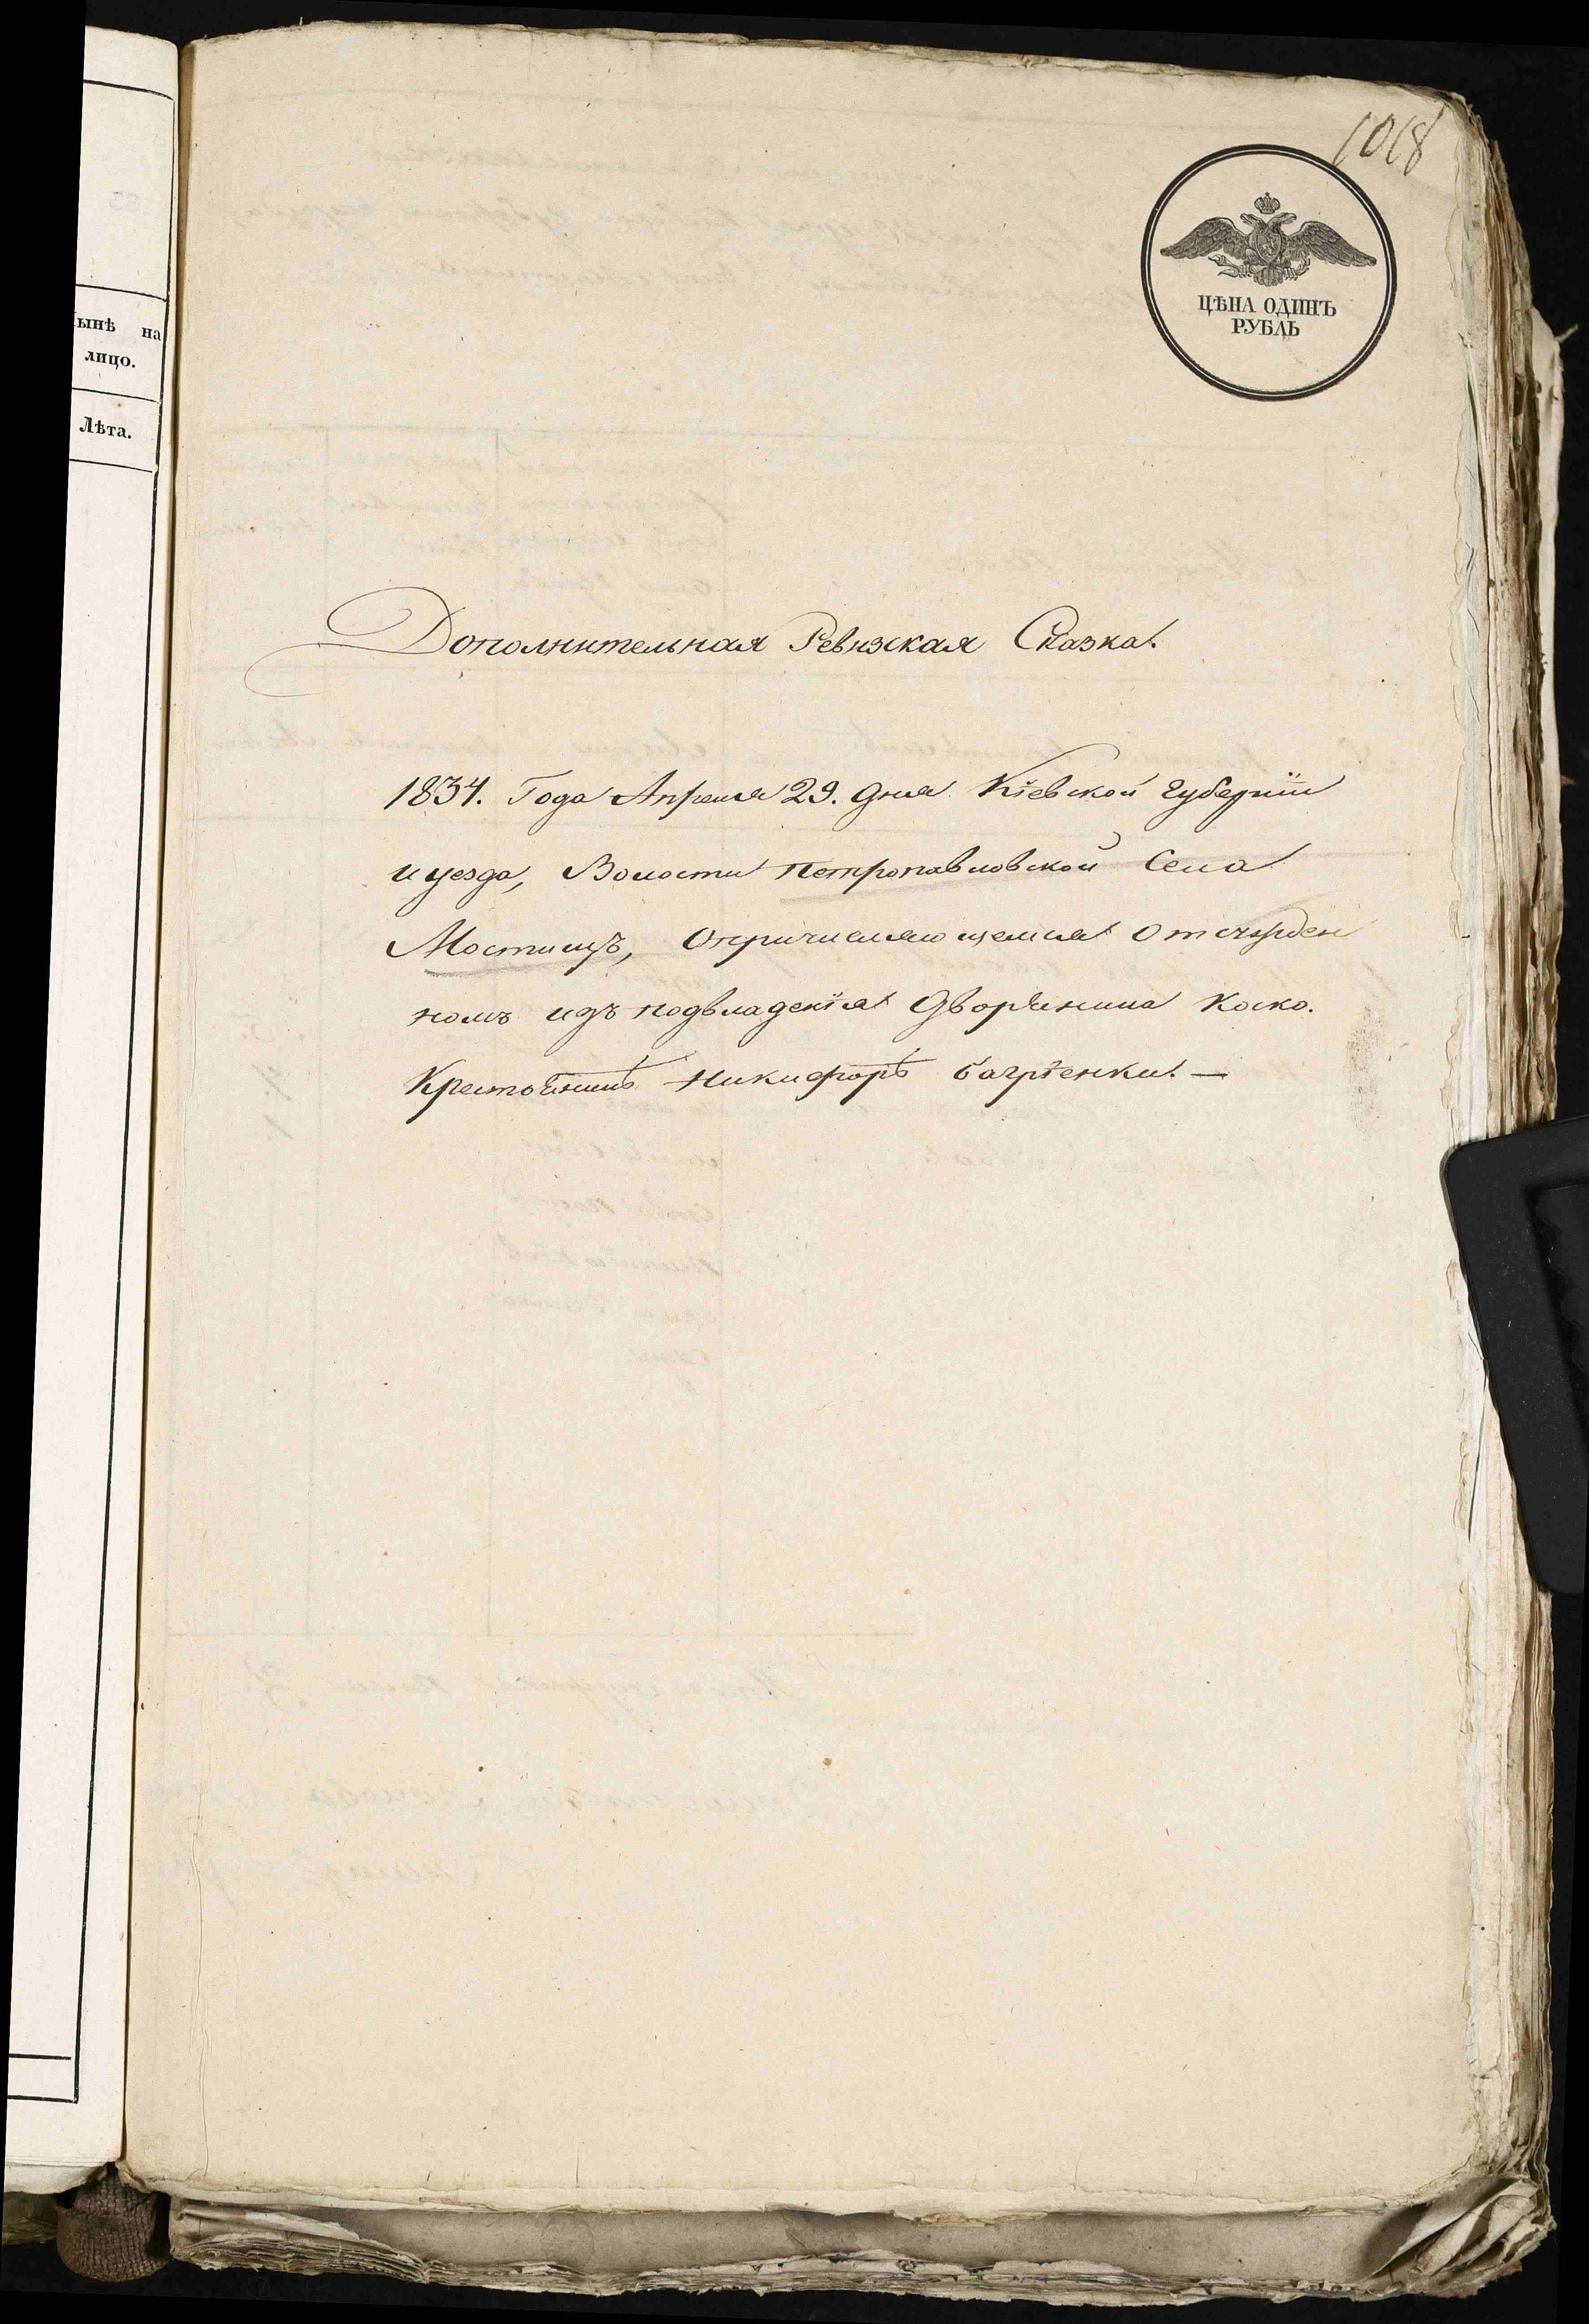 ынѣ на
лицо.
Лѣта.
1018
ЦѢНА ОДИНЪ
РУБЛЬ
Дополнительная Ревизская Сказка.
1834. Года Апреля 29. дня Кіевской Губерніи
и уезда, Волости Петропавловской Села
Мостищъ, Отсужден
номъ изъ подвладенія Дворянина Коско.
Никифоръ